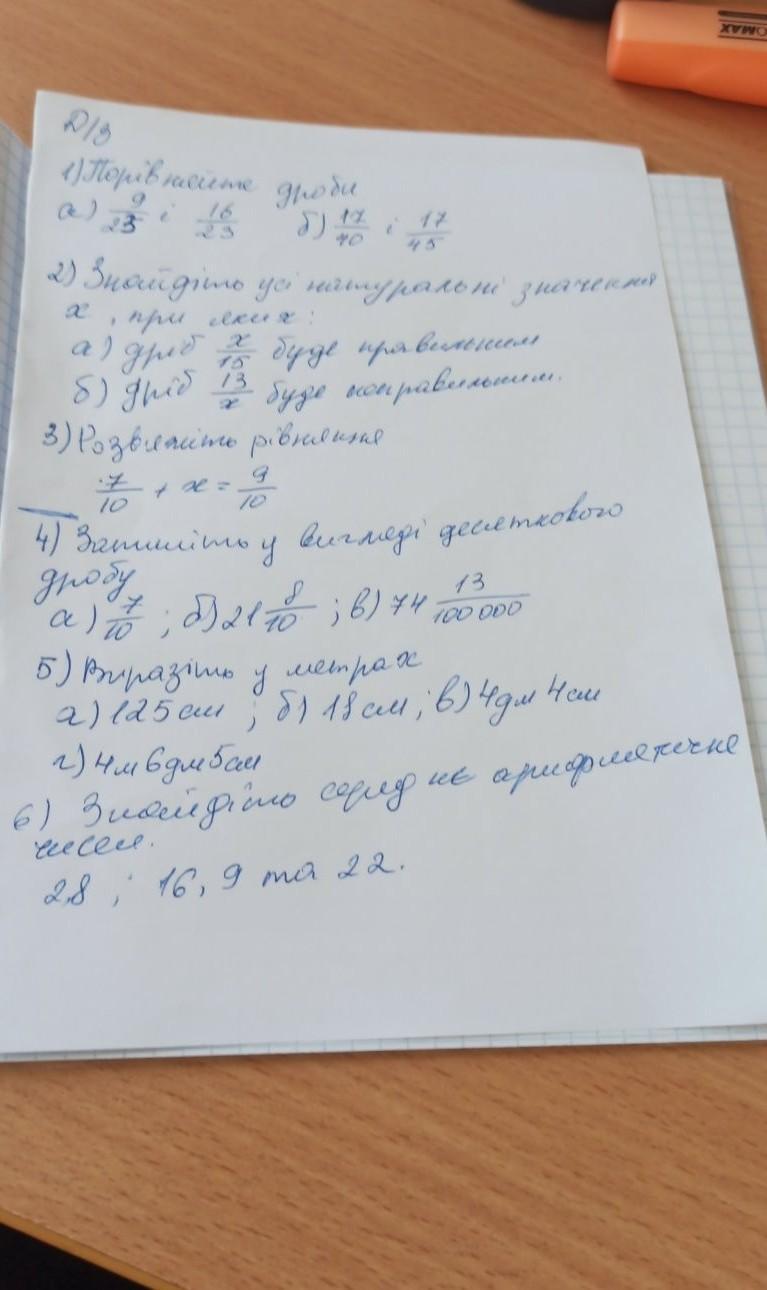 Д/З
1) Порівняйте дроби
а) 9/23 і 16/23 б) 17/40 і 17/45
2) Знайдіть усі натуральні значення
x, при яких:
а) дріб x/15 буде правильним
б) дріб 13/x буде неправильним.
3) Розв'яжіть рівняння
7/10 + x = 9/10
4) Запишіть у вигляді десяткового
дробу
а) 7/10 ; б) 21 8/10 ; в) 74 13/100 000
5) Виразіть у метрах
а) 125 см ; б) 18 см ; в) 4 дм 4 см
г) 4 м 6 дм 5 см
6) Знайдіть середнє арифметичне
чисел.
28 ; 16, 9 та 22.